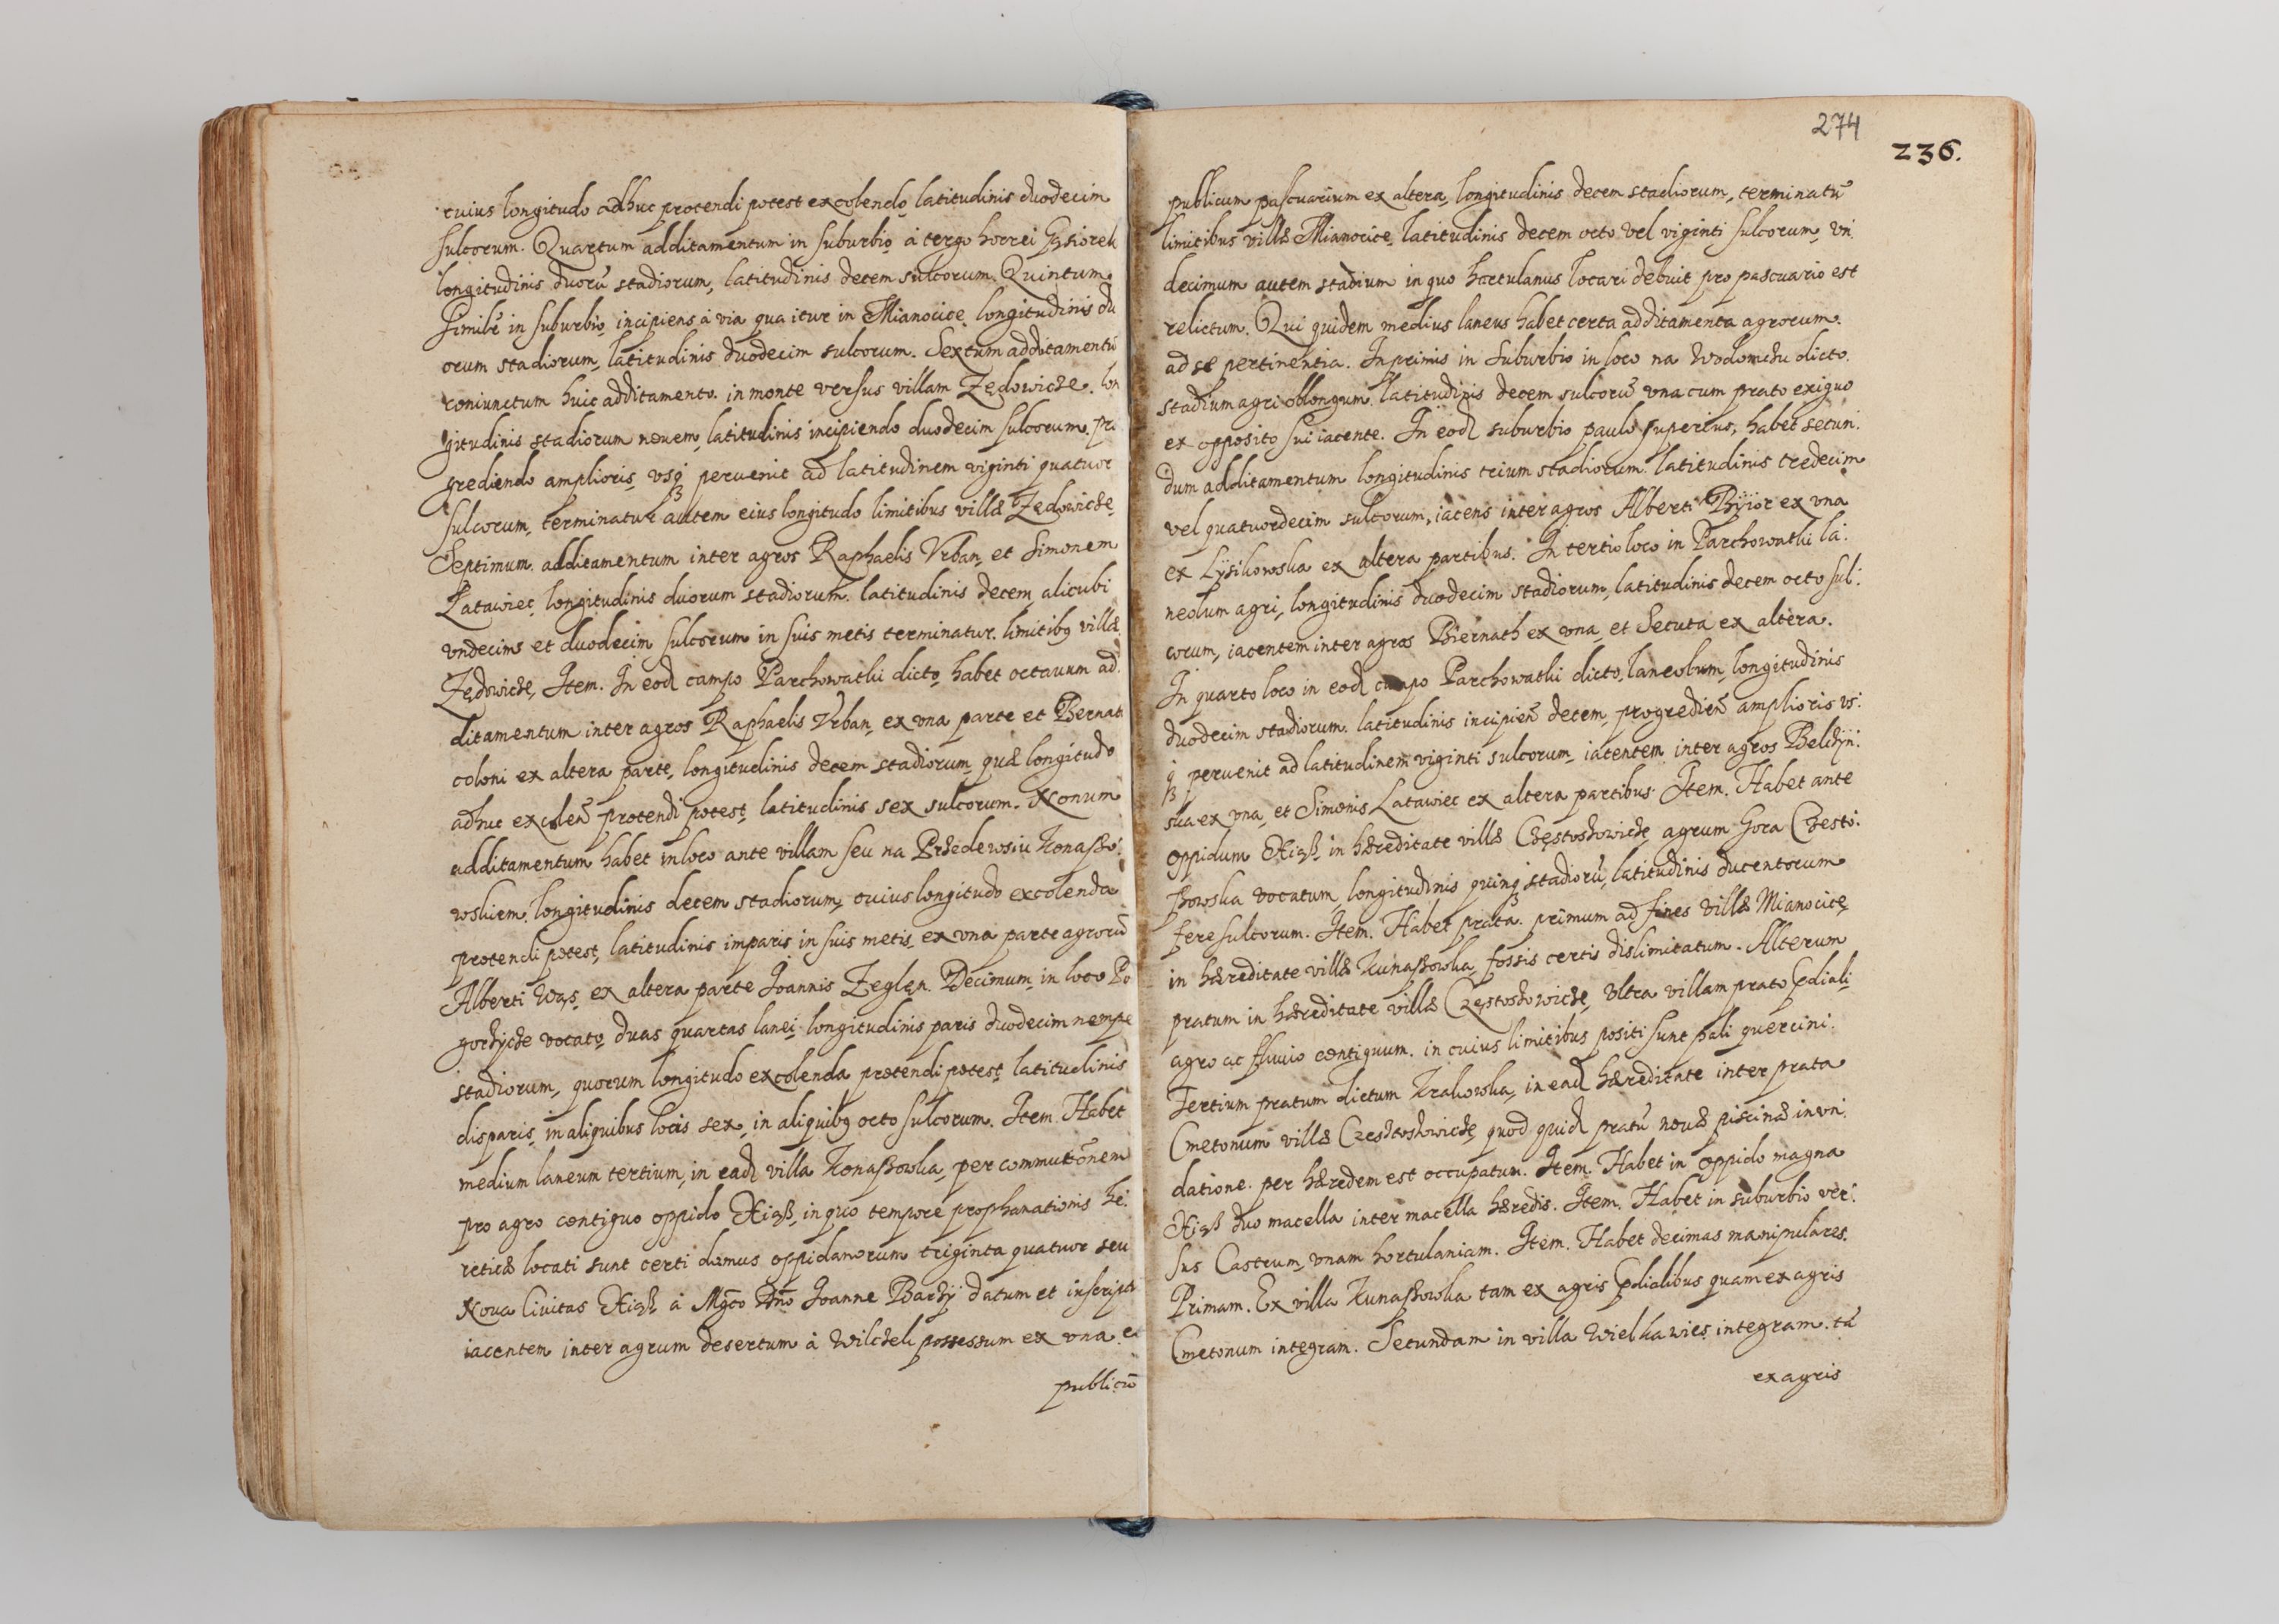 cuius longitudo adhuc protendi potest excolendo, latitudinis duodecim
sulcorum. Quartum additamentum in suburbio, à tergo horrei Gąsiorek
longitudinis duorū stadiorum, latitudinis decem sulcorum. Quintum
simile in suburbio, incipiens à via qua itur in Mianocice, longitudinis du
orum stadiorum, latitudinis duodecim sulcorum. Sextum additamentū
coniunctum huic additamento. in monte versus villam Zędowicze. lon
gitudinis stadiorum nouem, latitudinis incipiendo duodecim sulcorum. pro
grediendo amplioris, vsq peruenit ad latitudinem viginti quatuor
sulcorum, terminatur autem eius longitudo limitibus villæ Zędowicze,
Septimum. additamentum inter agros Raphaelis Vrban, et Simonem
Latawiec, longitudinis duorum stadiorum. latitudinis decem, alicubi
vndecim et duodecim sulcorum in suis metis terminatur. limitibq villæ
Zędowicze, Item. In eod campo Parchowatki dicto, habet octauum ad
ditamentum inter agros Raphaelis Vrban, ex vna parte et Bernat
coloni ex altera parte, longitudinis decem stadiorum, quæ longitudo
adhuc excolēn protendi potest, latitudinis sex sulcorum. Nonum
additamentum habet in loco ante villam seu na Przedewsiu Konaszo:
wskiem. longitudinis decem stadiorum, cuius longitudo excolenda
protendi potest, latitudinis imparis in suis metis, ex vna parte agrorū
Alberti Wąs, ex altera parte Joannis Zeglęn. Decimum, in loco Po
gorzycze vocato, duas quartas lanei, longitudinis paris duodecim nempe
stadiorum, quorum longitudo excolenda protendi potest, latitudinis
disparis, in aliquibus locis sex, in aliquibq octo sulcorum. Item. Habet
medium laneum tertium, in ead villa Konaszowka, per commutōnem
pro agro contiguo oppido Xiąß, in quo tempore prophanationis hę:
reticæ locati sunt certi domus oppidanorum triginta quatuor seu
Noua Ciuitas Xiąß à Mgco Dno Joanne Barzy datum et inscript
iacentem inter agrum desertum à Wilczek possessum ex vna. e
publicū
274
236.
publicum pascuarium ex altera, longitudinis decem stadiorum, terminatū
limitibus villæ Mianocice, latitudinis decem octo vel viginti sulcorum, vn:
decimum autem stadium in quo hortulanus locari debuit pro pascuario est
relictum. Qui quidem medius laneus habet certa additamenta agrorum.
ad se pertinentia. Inprimis in suburbio in loco na Wodomchu dicto.
stadium agri oblongum. latitudinis decem sulcorū vna cum prato exiguo
ex opposito sui iacente. In eod suburbio paulo superius, habet secun:
dum additamentum longitudinis trium stadiorum. latitudinis tredecim
vel quatuordecim sulcorum, iacens inter agros Alberti Bÿior ex vna
ex Lÿsikowska ex altera partibus. In tertio loco in Parchowatki la:
neolum agri, longitudinis duodecim stadiorum, latitudinis decem octo sul:
corum, iacentem inter agros Biernath ex vna, et Secuta ex altera.
In quarto loco in eod campo Parchowatki dicto, laneolum, longitudinis
duodecim stadiorum. latitudinis incipien̄ decem, progredien̄ amplioris vs:
q peruenit ad latitudinem viginti sulcorum, iacentem inter agros Belczÿn:
ska ex vna, et Simonis Latawiec ex altera partibus. Item. Habet ante
oppidum Xiąß, in hæreditate villæ Częstoszowicze, agrum Gora Czesto:
szowska vocatum, longitudinis quinq stadiorū, latitudinis ducentorum
fere sulcorum. Item. Habet prata. primum ad fines villæ Mianocice,
in hæreditate villæ Kunaszowka, fossis certis dislimitatum. Alterum
pratum in hæreditate villæ Częstoszowicze, vltra villam prato prædiali,
agro ac fluuio contiguum. in cuius limitibus positi sunt pali quercini.
Tertium pratum dictum Krakowska, in ead hæreditate inter prata
Cmetonum villæ Czestoszowicze, quod quid pratū nouæ piscinæ invn:
datione. per hæredem est occupatum. Item. Habet in oppido magna
Xiąß duo macella inter macella hæredis. Item. Habet in suburbio ver:
sus Castrum, vnam hortulaniam. Item. Habet decimas manipulares.
Primam. Ex villa Kunaszowka tam ex agris prædialibus quam ex agris
Cmetonum integram. Secundam in villa Wielka wies integram. tā
ex agris